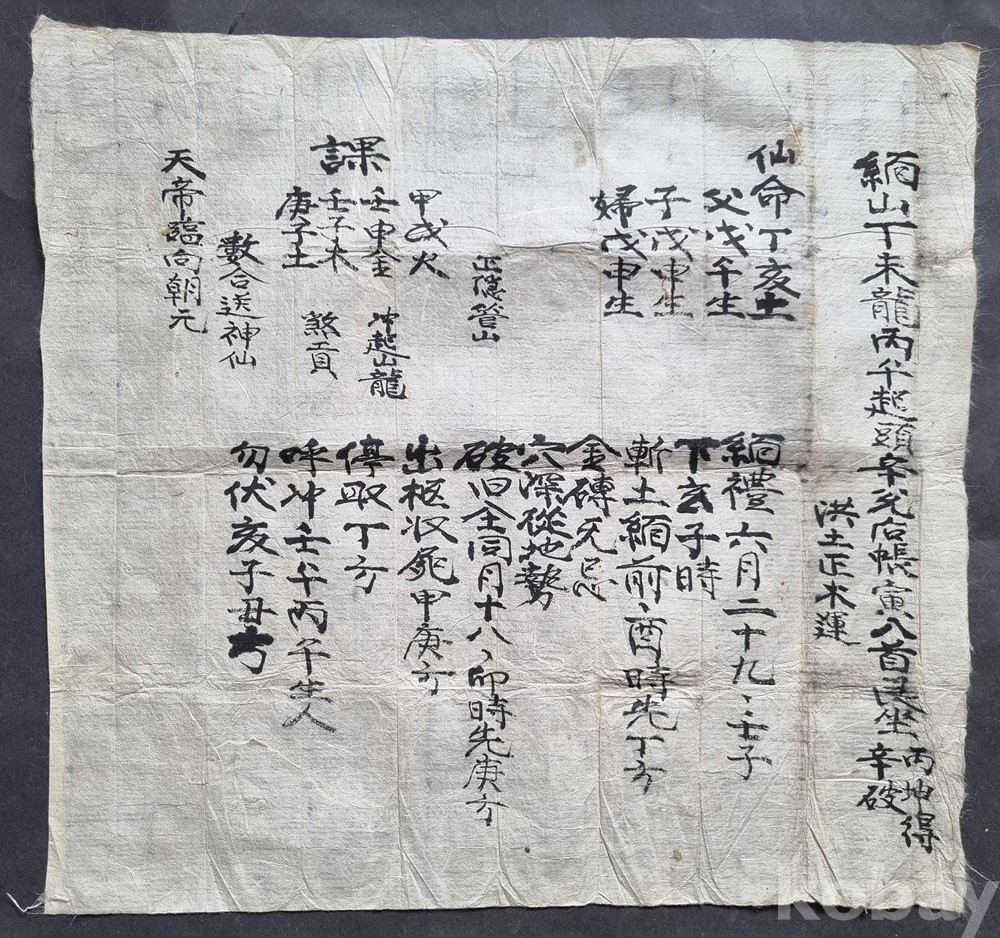 緬山丁未龍丙午起頭辛兌店帳寅入首艮坐 丙坤得 辛破
洪土正木運
仙命丁亥土
父戊午生
子戊申生
婦戊申生
正隱管山
甲戌火
壬申金 冲起山龍
課 壬子木
庚子土 煞貢
數合送神仙
天帝臨向朝元
緬禮六月二十九丶壬子
下玄子時
斬土緬前丶酉時先丁方
金磚无忌
穴深從地勢
破旧仝同月十八丶卯時先庚方
出柩沢 甲庚方
停取丁方
呼冲壬午丙午生人
勿伏亥子丑方
kobay